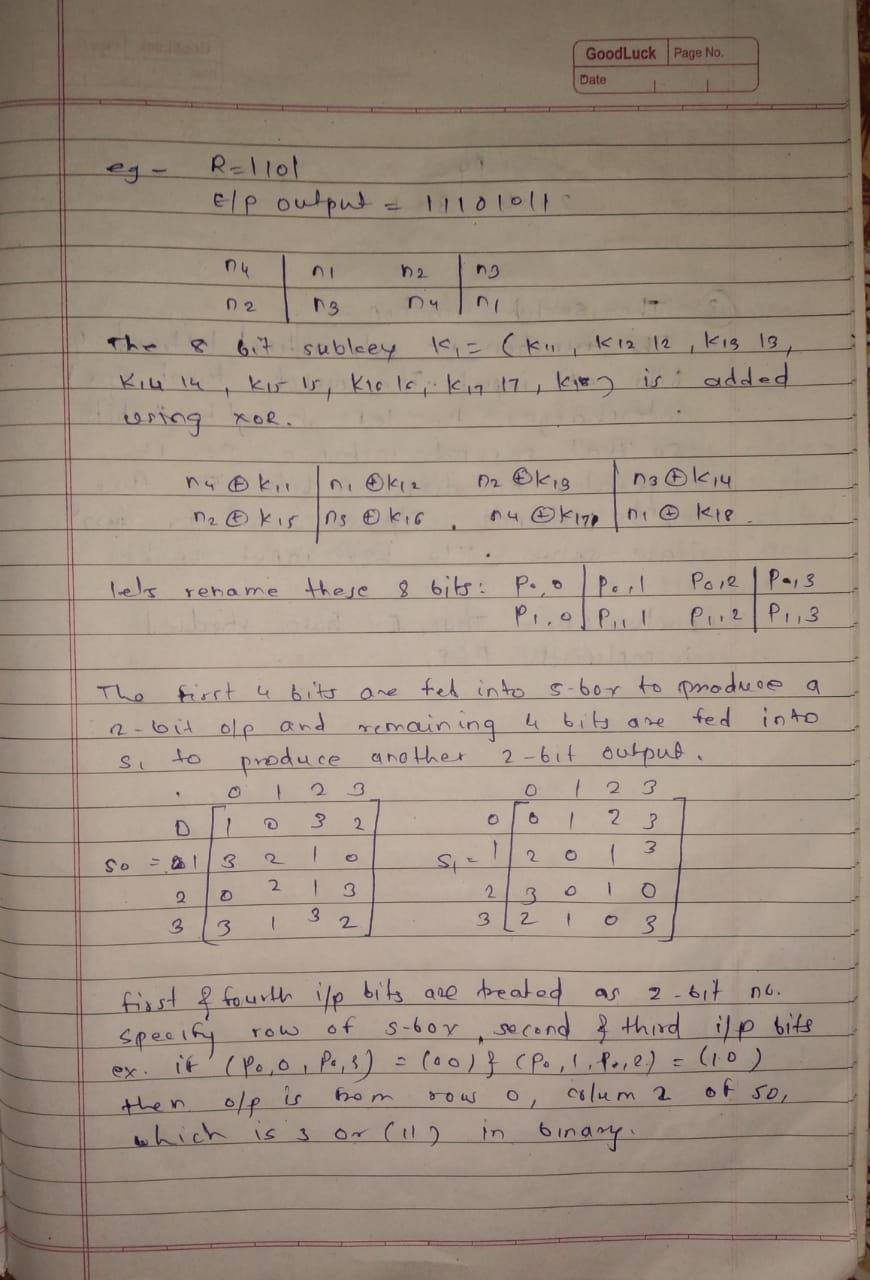 GoodLuck Page No.
Date
eg - R=1101
E/P output = 11101011
n4 | n1 n2 | n3
n2 | n3 n4 | n1
The 8 bit subkey K1 = (K11, K12 12, K13 13,
K14 14, K15 15, K16 16, K17 17, K18) is added
using XOR.
n4 ⊕ K11 | n1 ⊕ K12 n2 ⊕ K13 | n3 ⊕ K14
n2 ⊕ K15 | n3 ⊕ K16 n4 ⊕ K17 | n1 ⊕ K18
lets rename these 8 bits: P0,0 | P0,1 P0,2 | P0,3
P1,0 | P1,1 P1,2 | P1,3
The first 4 bits are fed into s-box to produce a
2-bit o/p and remaining 4 bits are fed into
S1 to produce another 2-bit output.
0 1 2 3 0 1 2 3
0 1 0 3 2 0 0 1 2 3
S0 = 1 3 2 1 0 S1 = 1 2 0 1 3
2 0 2 1 3 2 3 0 1 0
3 3 1 3 2 3 2 1 0 3
first & fourth i/p bits are treated as 2-bit no.
specify row of s-box, second & third i/p bits
ex. if (P0,0, P0,3) = (00) & (P0,1, P0,2) = (10)
then o/p is from row 0, colum 2 of S0,
which is 3 or (11) in binary.